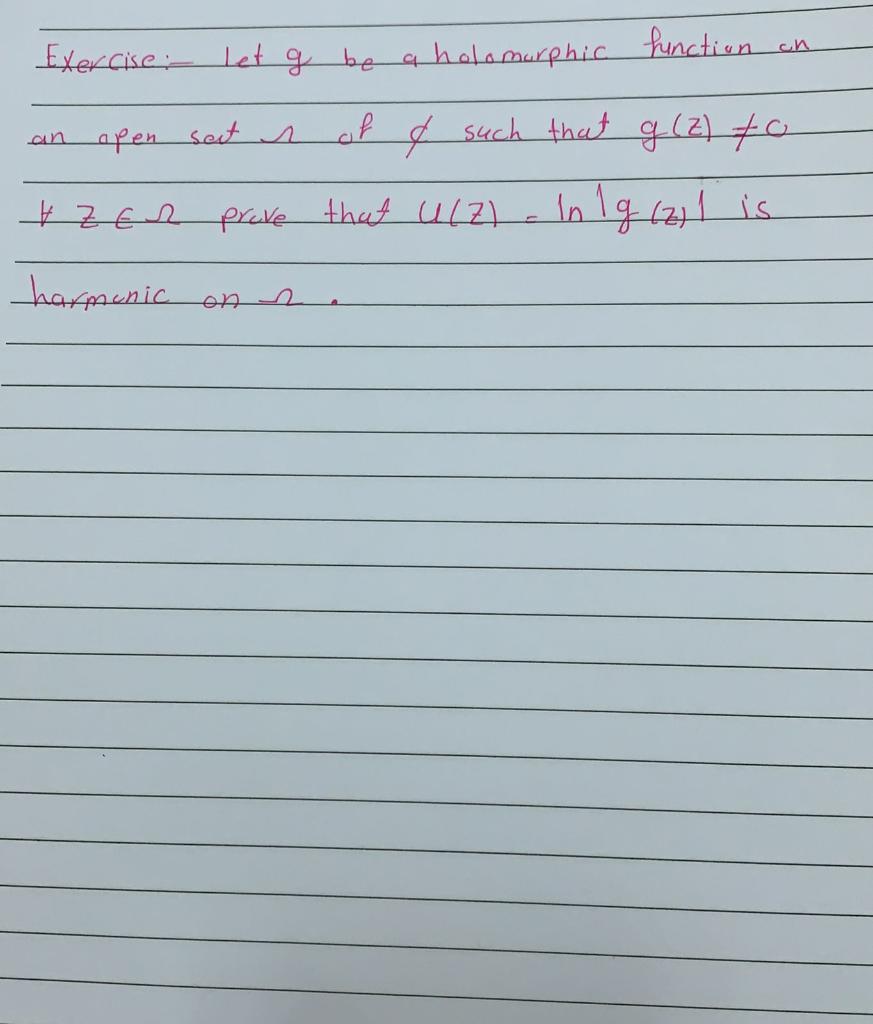 Exercise:- let g be a holomorphic function on
an open set Ω of ₵ such that g(z) ≠ 0
∀ z ∈ Ω prove that U(z) = ln |g(z)| is
harmonic on Ω .